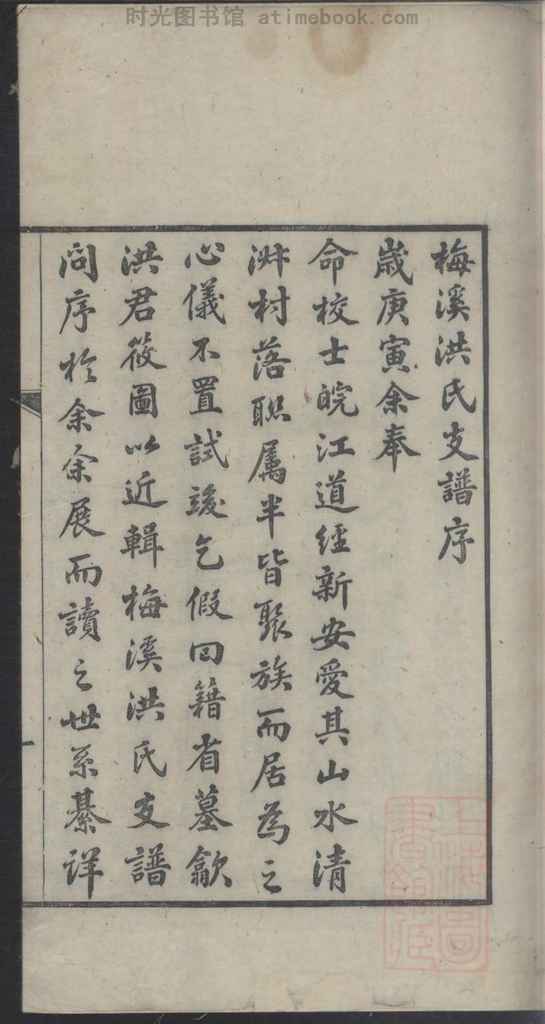 时光图书馆 atimebook.com
梅溪洪氏支譜序
歲庚寅余奉
命校士皖江道經新安愛其山水清
淑村落聯屬半皆聚族而居為之
心儀不置試竣乞假回籍省墓歙
洪君筱圖以近輯梅溪洪氏支譜
問序於余余展而讀之世系綦详
上海圖
書館藏